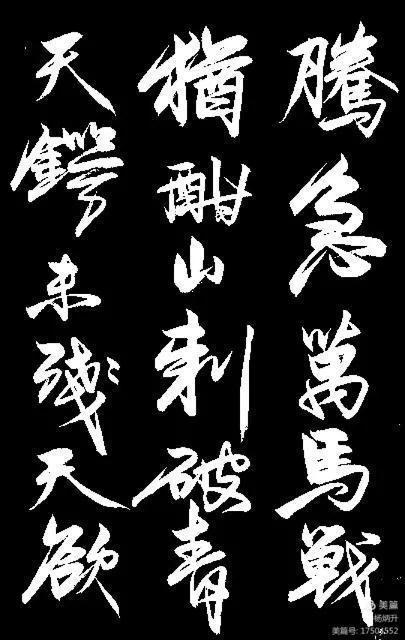 騰急萬馬戰
猶酣山刺破青
天鍔未殘天欲
美篇
杨炳升
美篇号: